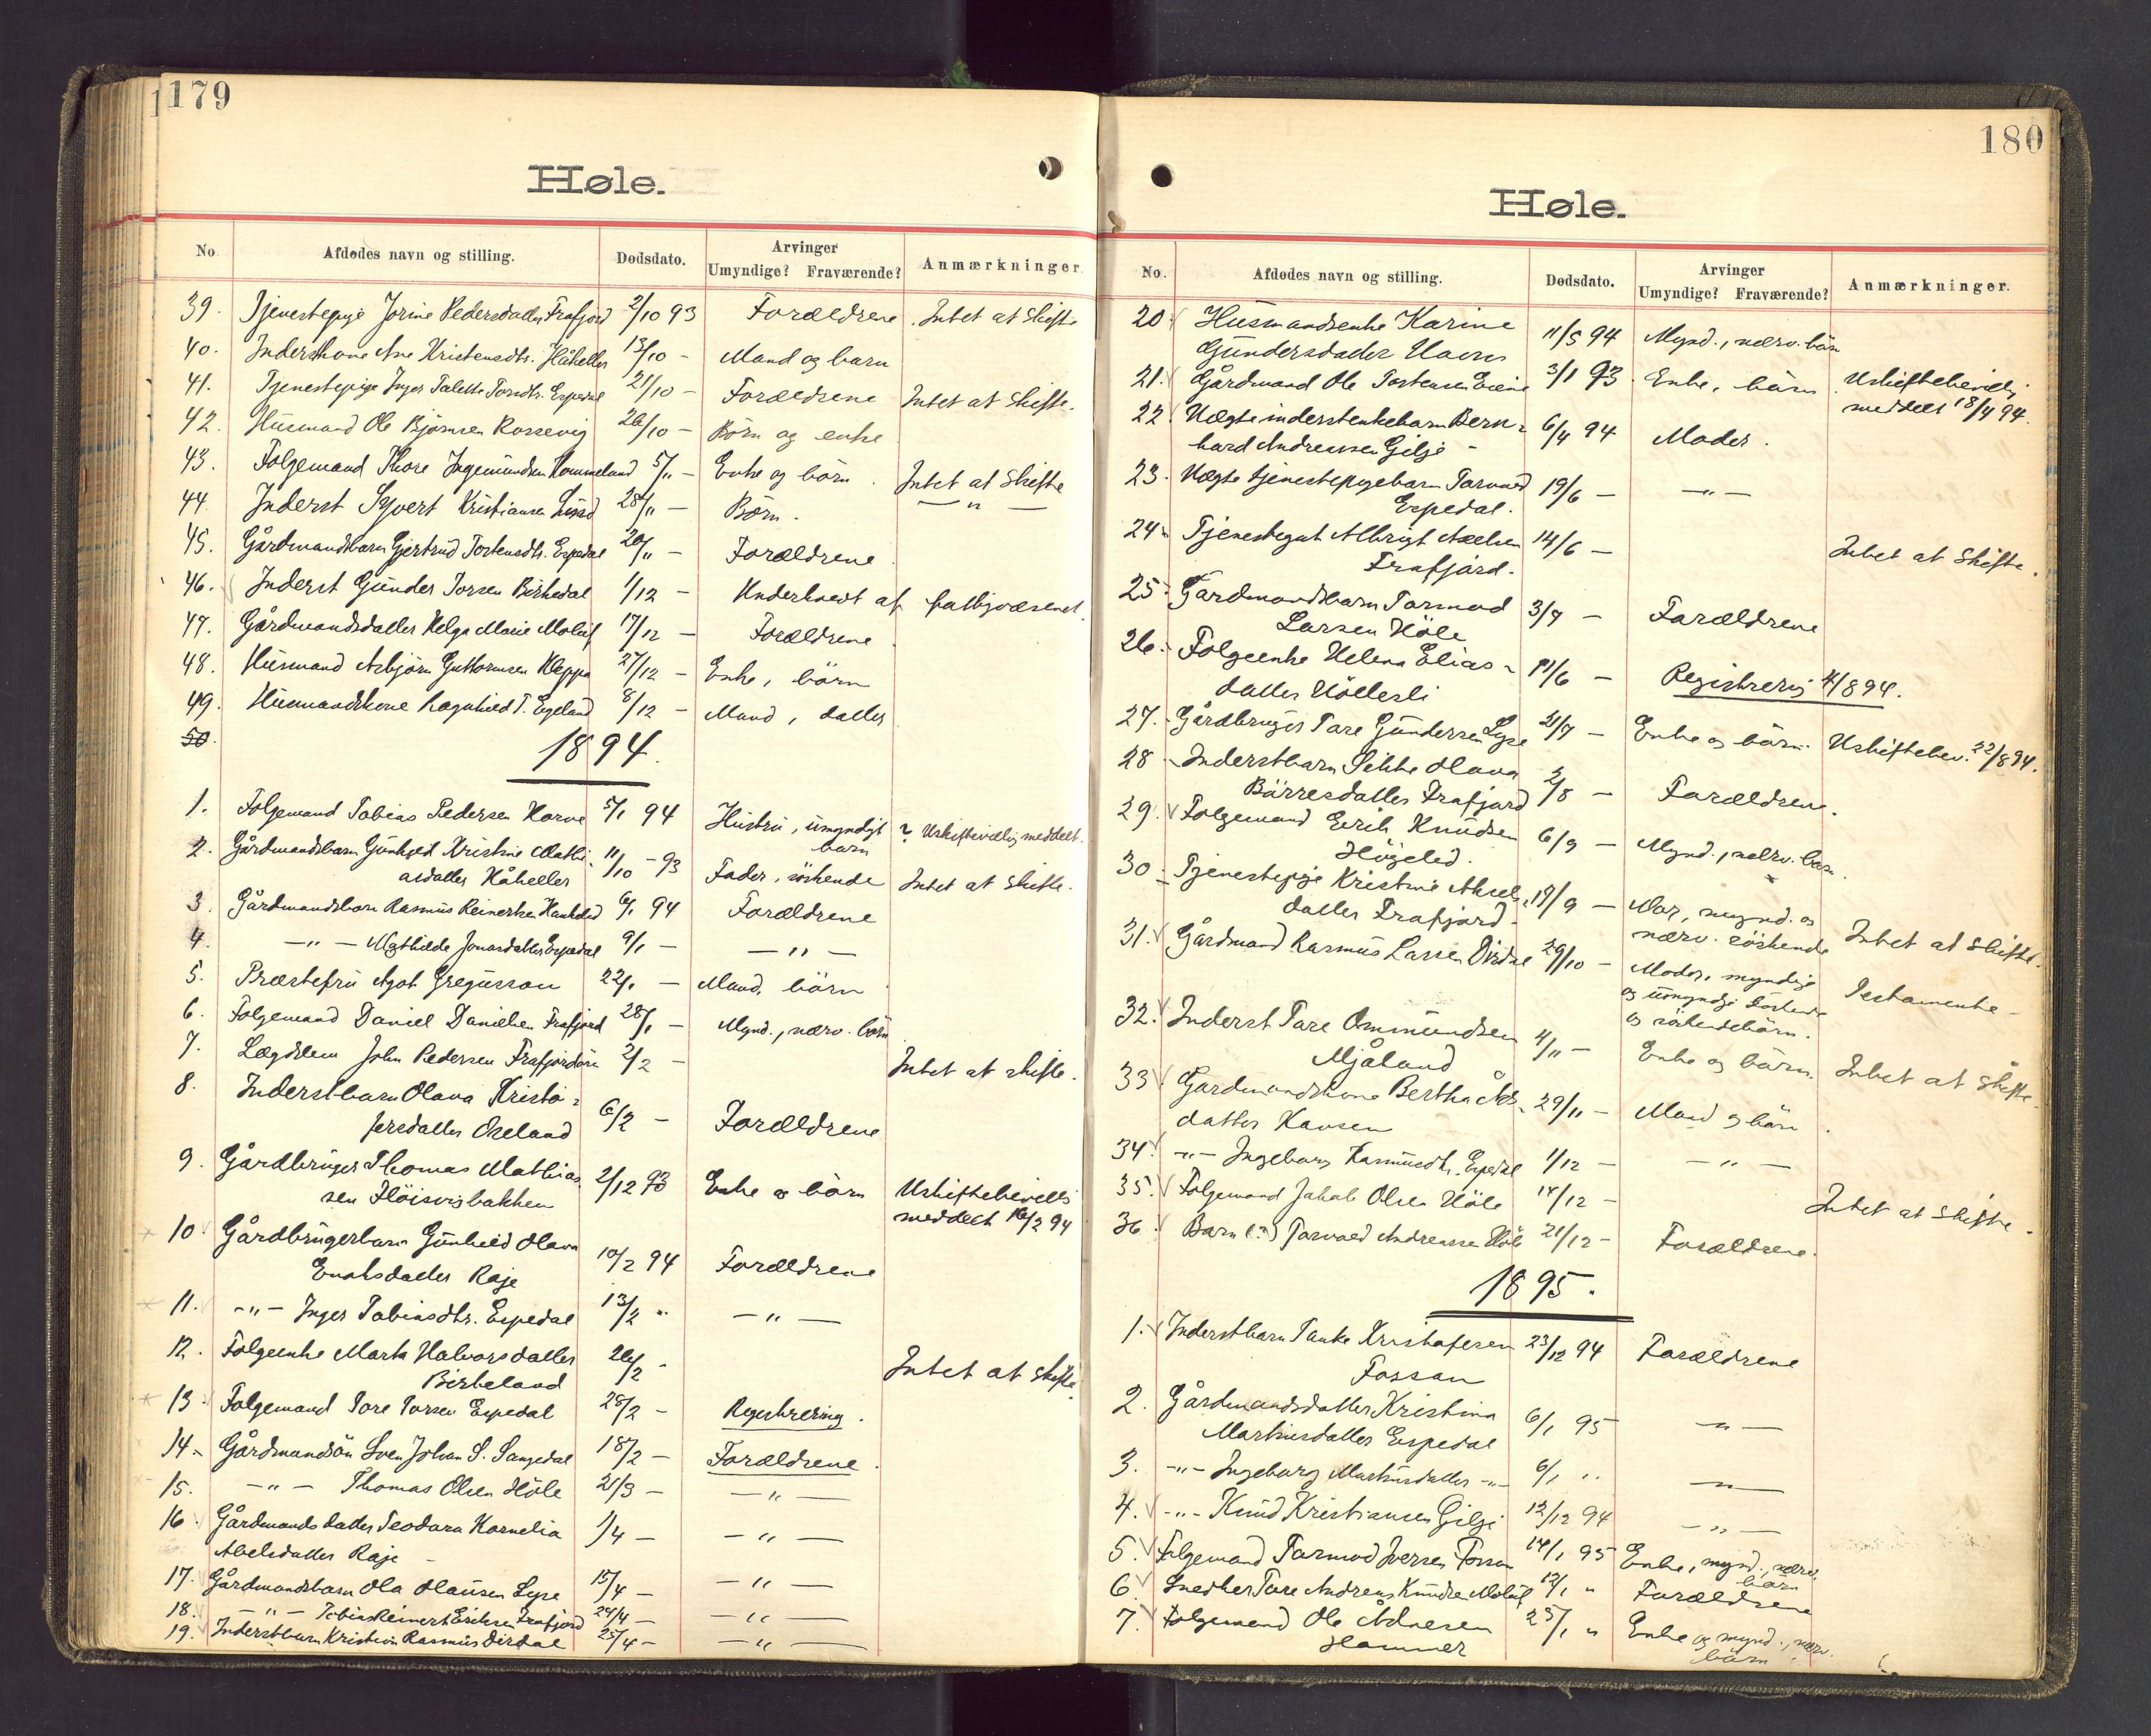 179
Høle.
No. Afdødes navn og stilling. Dødsdato. Arvinger Umyndige? Fraværende? Anmærkninger.
39. Tjenestepige Jorine Pedersdatter Frafjord 2/10 93 Forældrene. Intet at skifte
40. Inderskone Ane Kristensdtr. Håheller 13/10 - Mand og barn
41. Tjenestepige Inger Talette Torsdtr. Espedal 21/10 - Forældrene Intet at skifte.
42. Husmand Ole Bjørnsen Rossevig 26/10 - Börn og enke
43. Folgemand Thore Ingemundsen Hommeland 5/11 - Enke og börn. Intet at skifte
44. Inderst Syvert Kristiansen 28/11 - Börn. — " —
45. Gårdmandsbarn Gjertrud Tortensdtr. Espedal 20/11 - Forældrene
46. Inderst Gunder Torsen Birkedal 1/12 - Underholdt af fatbjoæsenet
47. Gårdmandsdatter Helga Marie Molaug 17/12 - Forældrene
48. Husmand Asbjørn Guttormsen Kleppa 27/12 - Enke, börn
49. Husmandskone Ragnhild T. Egeland 8/12 - Mand, datter
50.
1894.
1. Folgemand Tobias Pedersen Horve 5/1 94 Hustru, umyndigt ? Uskiftevillig meddelt.
barn
2. Gårdmandsbarn Gunhild Kristine Mathi-
asdatter Håheller 11/10 - 93 Fader, söskende Intet at skifte.
3. Gårdmandsbarn Rasmus Reinertsen 6/1 94 Forældrene
4. — " — Mathilde Jonasdatter Espedal 9/1 - — " —
5. Præstefru Agot Gregusson 22/1 - Mand, börn
6. Folgemand Daniel Danielsen Frafjord 28/1 - Mynd., nærv. börn
7. Lægdslem John Pedersen Frafjordøre 2/2 - Intet at skifte.
8. Inderstbarn Olava Kristo-
fersdatter Oseland 6/2 - Forældrene
9. Gårdbruger Thomas Mathias-
sen Höisvigbakken 2/12 93 Enke og börn Uskiftebevilli
meddelt 16/2 94
10. Gårdbrugerbarn Gunhild Olava
Enoksdatter Røje 10/2 94 Forældrene
11. — " — Inger Tobiasdtr. Espedal 13/2 " — " —
12. Folgeenke Marta Halvorsdatter
Birkeland 26/2 - Intet at skifte.
13. Folgemand Tore Torsen Espedal 28/2 - Registrering.
14. Gårdmandsön Sven Johan S. Sangedal 18/2 - Forældrene.
15. — " — Thomas Olsen Höle 21/3 - — " —
16. Gårdmandsdatter Teodora Kornelia 1/4 - — " —
Abelsdatter Røje -
17. Gårdmandsbarn Ola Olausen Lyse 15/4 - — " —
18. — " — Tobias Reinert Eriksen Frafjord 24/4 - — " —
19. Inderstbarn Kristian Rasmus Dirdal 25/4 - — " —
180
Høle.
No. Afdødes navn og stilling. Dødsdato. Arvinger Umyndige? Fraværende? Anmærkninger.
20. Husmandsenke Karine
Gundersdatter Haavn 11/5 94 Mynd., nærv. börn
21. Gårdmand Ole Tostensen Eiene 3/1 93. Enke, börn. Uskiftebevillg
meddelt 18/4 94.
22. Uægte inderstenkebarn Bern-
hard Andreassen Gilje - 6/4 94 Moder.
23. Uægte tjenestepigebarn Torvald
Espedal. 19/6 - — " —
24. Tjenestegut Albrigt Axelsen
Frafjord. 14/6 - Intet at skifte.
25. Gårdmandsbarn Tarmod
Larsen Höle 3/7 - Forældrene
26. Folgeenke Helena Elias-
datter Höllesli 11/6 - Registrering 4/8 94.
27. Gårdbruger Tore Gundersen Lyse 21/7 - Enke og börn. Uskiftebev. 22/8 94.
28. Inderstbarn Sikke Olava
Börresdatter Frafjord 2/8 - Forældrene.
29. Folgemand Eirik Knudsen
Högeled. 6/9 - Mynd., nærv. barn.
30. Tjenestepige Kristine Aksels-
datter Frafjord - 19/9 - Mor, mynd. og
nærv. söskende Intet at skifte.
31. Gårdmand Rasmus Larsen Dirdal 29/10 - Moder, myndige
og umyndige söskende
og söskendebörn. Testamente -
32. Inderst Tore Ommundsen
Mjåland 4/11 - Enke og börn. Intet at skifte.
33. Gårdmandskone Bertha Åds-
datter Hansen 29/11 - Mand og börn.
34. — " — Ingeborg Rasmusdtr. Espedal 1/12 - — " —
35. Folgemand Jakob Olsen Höle 14/12 - Intet at skifte.
36. Barn (?) Torvald Andreassen Höle 21/12 - Forældrene.
1895.
1. Inderstbarn Tanke Kristofersen
Fossan 23/12 94 Forældrene
2. Gårdmandsdatter Kristina
Martinsdatter Espedal 6/1 95 — " —
3. — " — Ingeborg Martinsdatter — " — 6/1 " — " —
4. — " — Knud Kristiansen Gilje 12/12 94 — " —
5. Folgemand Tarmod Iversen Fossan 14/1 95 Enke, mynd., nærv.
börn
6. Snedker Tore Andreas Knudsen Molaug 12/1 " Forældrene
7. Folgemand Ole Ådnesen
Hammer 25/1 " Enke og mynd., nærv.
börn